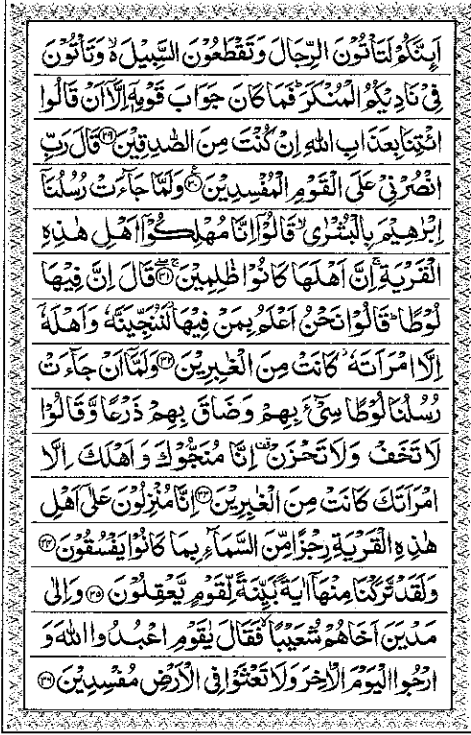 اَئِنَّكُمْ لَتَاْتُوْنَ الرِّجَالَ وَتَقْطَعُوْنَ السَّبِيْلَ ۙ وَتَاْتُوْنَ
فِيْ نَادِيْكُمُ الْمُنْكَرَ ؕ فَمَا كَانَ جَوَابَ قَوْمِهٖۤ اِلَّاۤ اَنْ قَالُوا
ائْتِنَا بِعَذَابِ اللّٰهِ اِنْ كُنْتَ مِنَ الصّٰدِقِيْنَ ۝۲۹ قَالَ رَبِّ
انْصُرْنِيْ عَلَى الْقَوْمِ الْمُفْسِدِيْنَ ۝۳۰ وَلَمَّا جَآءَتْ رُسُلُنَاۤ
اِبْرٰهِيْمَ بِالْبُشْرٰى ۙ قَالُوْۤا اِنَّا مُهْلِكُوْۤا اَهْلِ هٰذِهِ
الْقَرْيَةِ ۚ اِنَّ اَهْلَهَا كَانُوْا ظٰلِمِيْنَ ۝۳۱ قَالَ اِنَّ فِيْهَا
لُوْطًا ؕ قَالُوْا نَحْنُ اَعْلَمُ بِمَنْ فِيْهَا ٘ لَنُنَجِّيَنَّهٗ وَاَهْلَهٗۤ
اِلَّا امْرَاَتَهٗ ٘ كَانَتْ مِنَ الْغٰبِرِيْنَ ۝۳۲ وَلَمَّاۤ اَنْ جَآءَتْ
رُسُلُنَا لُوْطًا سِيْٓءَ بِهِمْ وَضَاقَ بِهِمْ ذَرْعًا وَّقَالُوْا
لَا تَخَفْ وَلَا تَحْزَنْ ۫ اِنَّا مُنَجُّوْكَ وَاَهْلَكَ اِلَّا
امْرَاَتَكَ كَانَتْ مِنَ الْغٰبِرِيْنَ ۝۳۳ اِنَّا مُنْزِلُوْنَ عَلٰۤى اَهْلِ
هٰذِهِ الْقَرْيَةِ رِجْزًا مِّنَ السَّمَآءِ بِمَا كَانُوْا يَفْسُقُوْنَ ۝۳۴
وَلَقَدْ تَّرَكْنَا مِنْهَاۤ اٰيَةًۢ بَيِّنَةً لِّقَوْمٍ يَّعْقِلُوْنَ ۝۳۵ وَاِلٰى
مَدْيَنَ اَخَاهُمْ شُعَيْبًا ۙ فَقَالَ يٰقَوْمِ اعْبُدُوا اللّٰهَ وَ
ارْجُوا الْيَوْمَ الْاٰخِرَ وَلَا تَعْثَوْا فِى الْاَرْضِ مُفْسِدِيْنَ ۝۳۶